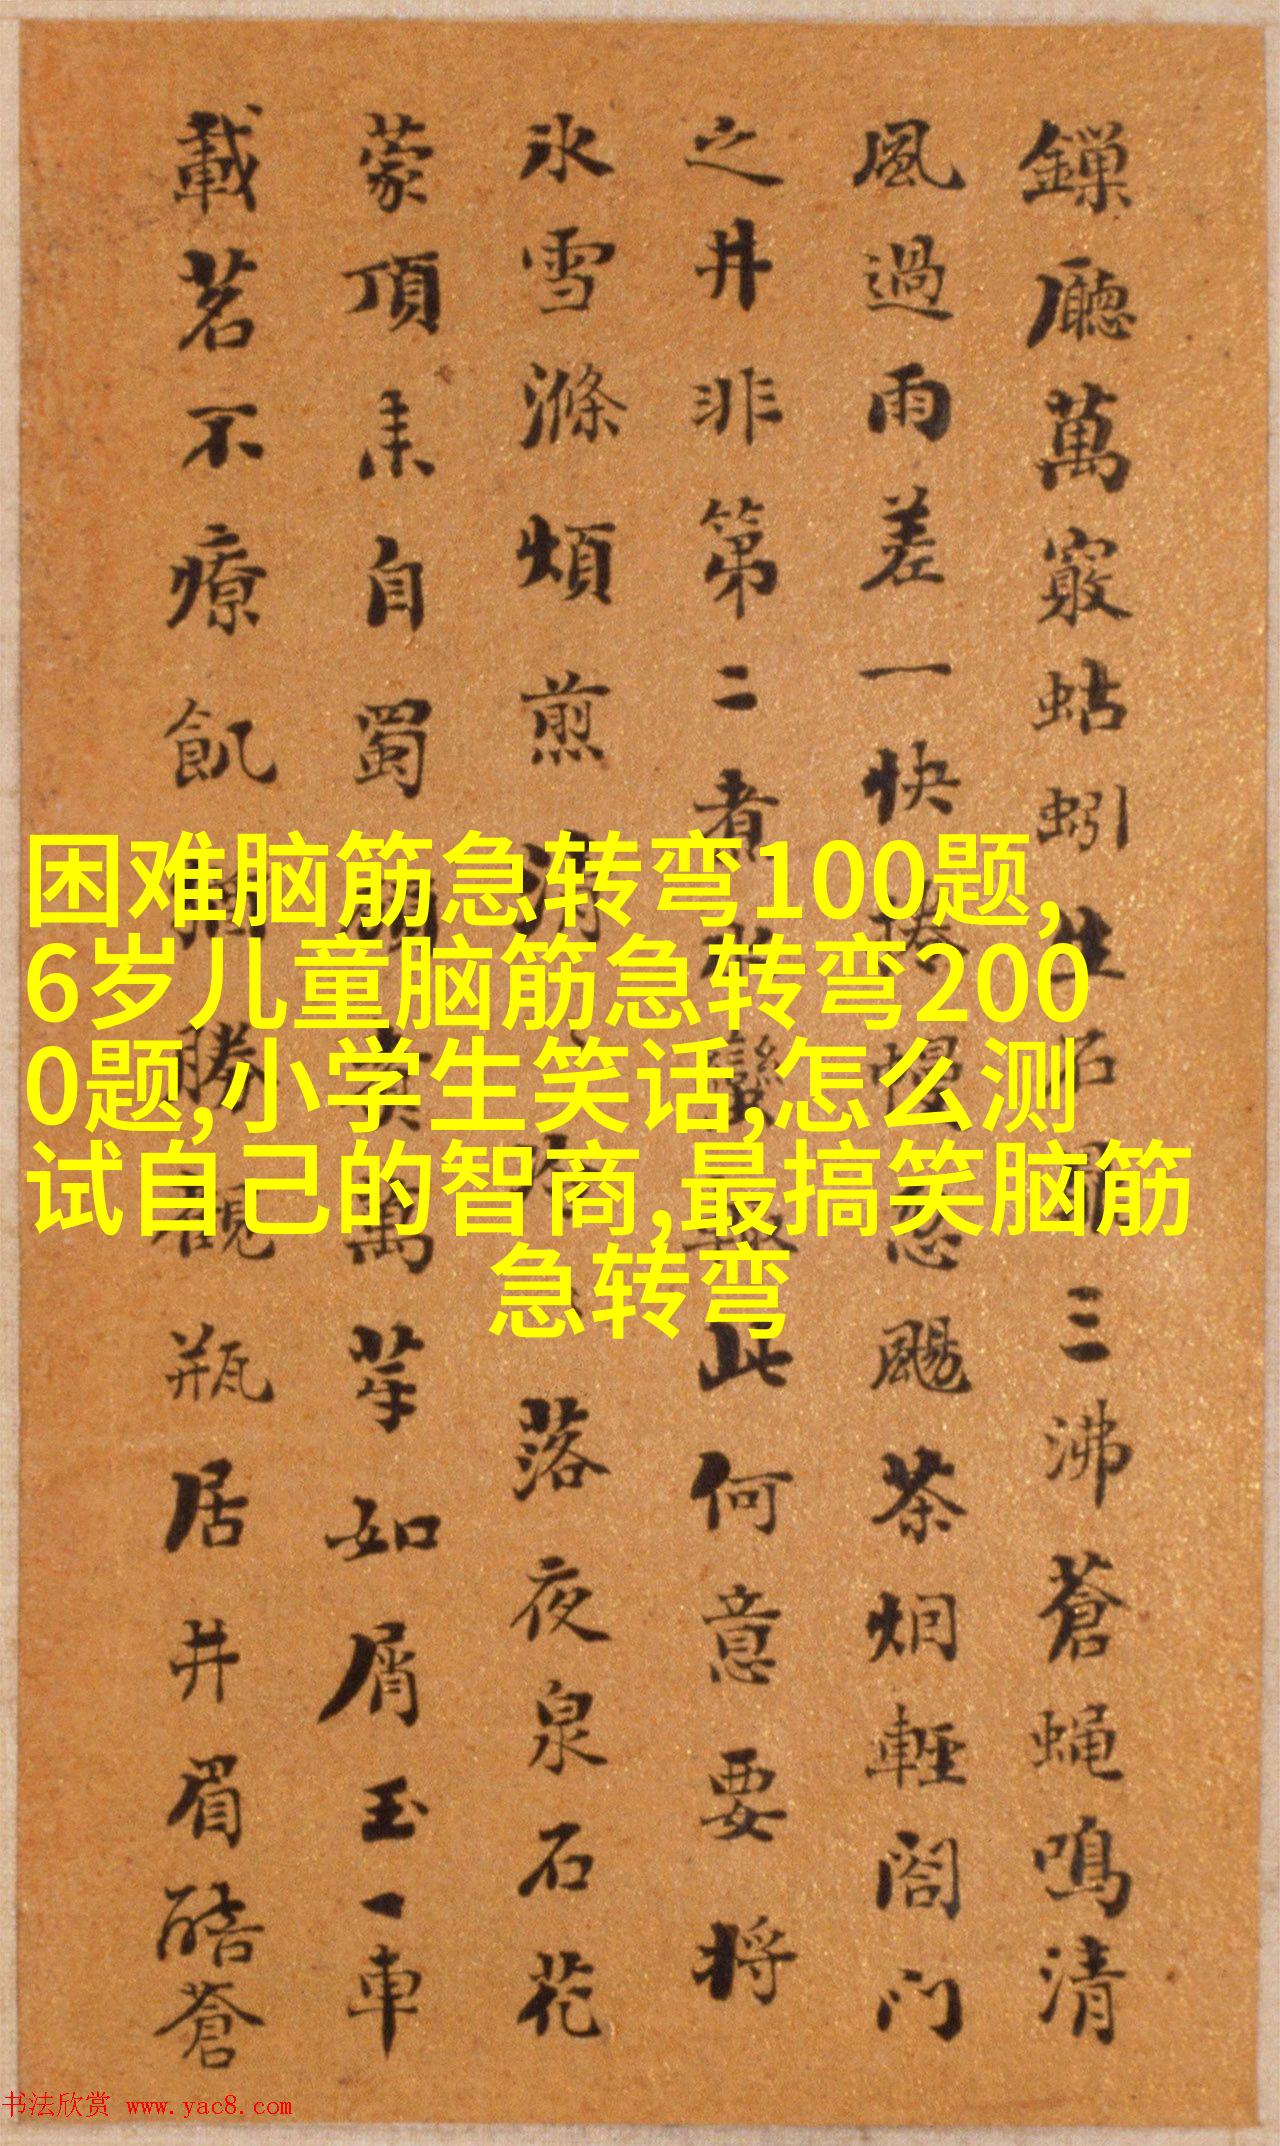 鏁廳萬竅蚯蚓生石鼎三沸蒼蝇鳴清
風過雨差一快捲幔忽颺茶烟輕閤門
之井非第二者此何意要将
氷雪滌煩煎落夜泉石花
蒙頂来自蜀萬芽如屑玉一車
載茗不療飢勝瓶居井眉酷蒼
困难脑筋急转弯100题,
6岁儿童脑筋急转弯200
0题,小学生笑话,怎么测
试自己的智商,最搞笑脑筋
急转弯
书法欣赏 www.yac8.com